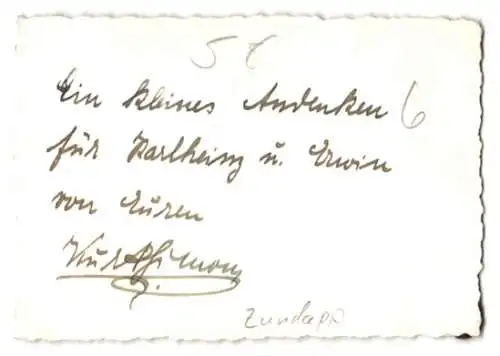 5 €
Ein kleines Andenken 6
für Karlheinz u. Erwin
von Euren
Kurt
Zündapp